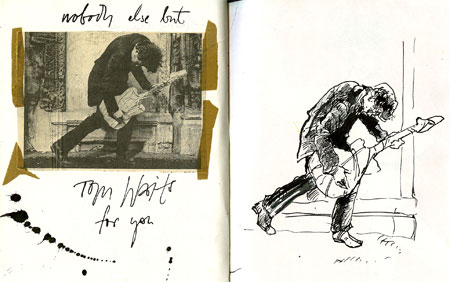 nobody else but
Tom Waits
for you